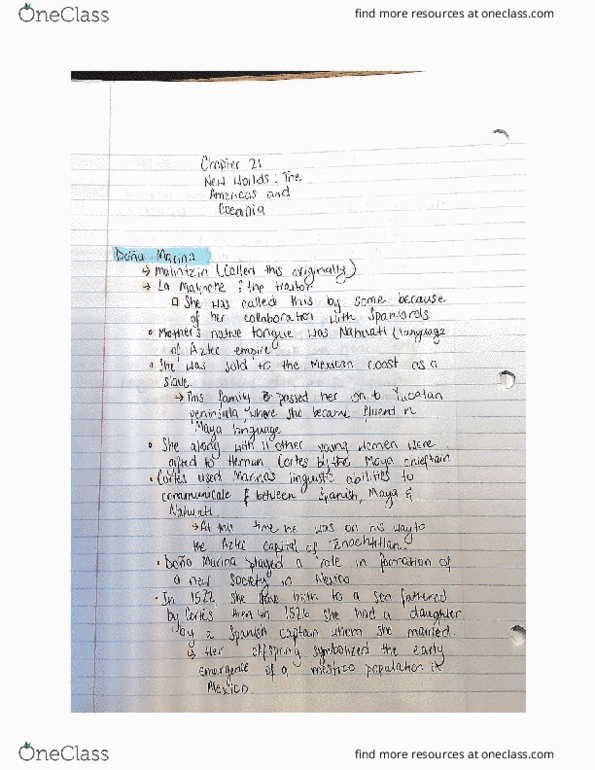 OneClass
find more resources at oneclass.com
Chapter 21
New Worlds: The
Americas and
Oceania
Doña Marina
→ Malintzin (called this originally)
→ La Malinche: the traitor
She was called this by some because
of her collaboration with Spaniards
• Mother's native tongue was Nahuatl (language
of Aztec empire
• She was sold to the Mexican coast as a
slave
→ This family passed her on to Yucatan
peninsula, where she became fluent in
Maya language
• She along with 11 other young women were
gifted to Hernan Cortes by the Maya chieftain
• Cortes used Marina's linguistic abilities to
communicate between Spanish, Maya &
Nahuatl
→ At this time he was on his way to
the Aztec capital of
• Doña Marina played a role in formation of
a new society in Mexico
• In 1522 she gave birth to a son fathered
by Cortes then in 1526 she had a daughter
by a Spanish captain whom she married.
Her offspring symbolized the early
emergence of a mestizo population in
Mexico
OneClass
find more resources at oneclass.com